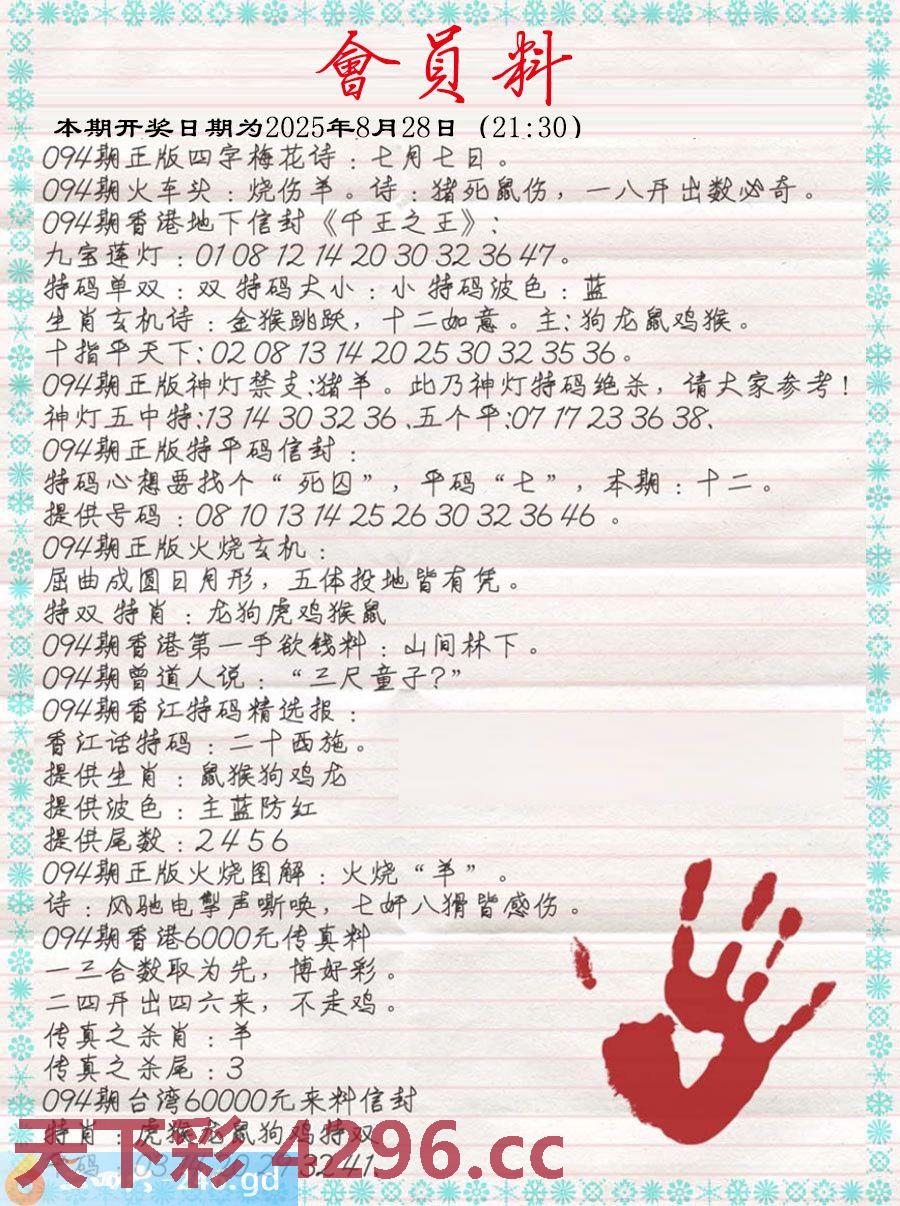 會員料
本期开奖日期为2025年8月28日（21:30）
094期正版四字梅花诗：七月七日。
094期火车头：烧伤羊。诗：猪死鼠伤，一八开出数必奇。
094期香港地下信封《千王之王》：
九宝莲灯：01 08 12 14 20 30 32 36 47。
特码单双：双 特码大小：小 特码波色：蓝
生肖玄机诗：金猴跳跃，十二如意。主：狗龙鼠鸡猴。
十指平天下：02 08 13 14 20 25 30 32 35 36。
094期正版神灯禁支：猪羊。此乃神灯特码绝杀，请大家参考！
神灯五中特：13 14 30 32 36、五个平：07 17 23 36 38、
094期正版特平码信封：
特码心想要找个“死囚”，平码“七”，本期：十二。
提供号码：08 10 13 14 25 26 30 32 36 46 。
094期正版火烧玄机：
屈曲成圆日月形，五体投地皆有凭。
特双 特肖：龙狗虎鸡猴鼠
094期香港第一手欲钱料：山间林下。
094期曾道人说：“三尺童子？”
094期香江特码精选报：
香江话特码：二十西施。
提供生肖：鼠猴狗鸡龙
提供波色：主蓝防红
提供尾数：2 4 5 6
094期正版火烧图解：火烧“羊”。
诗：风驰电掣声嘶唤，七奸八猾皆感伤。
094期香港6000元传真料
一三合数取为先，博好彩。
二四开出四六来，不走鸡。
传真之杀肖：羊
传真之杀尾：3
094期台湾60000元来料信封
特肖：虎猴龙鼠狗鸡特双
天下彩 4296.cc
32 41
.gd